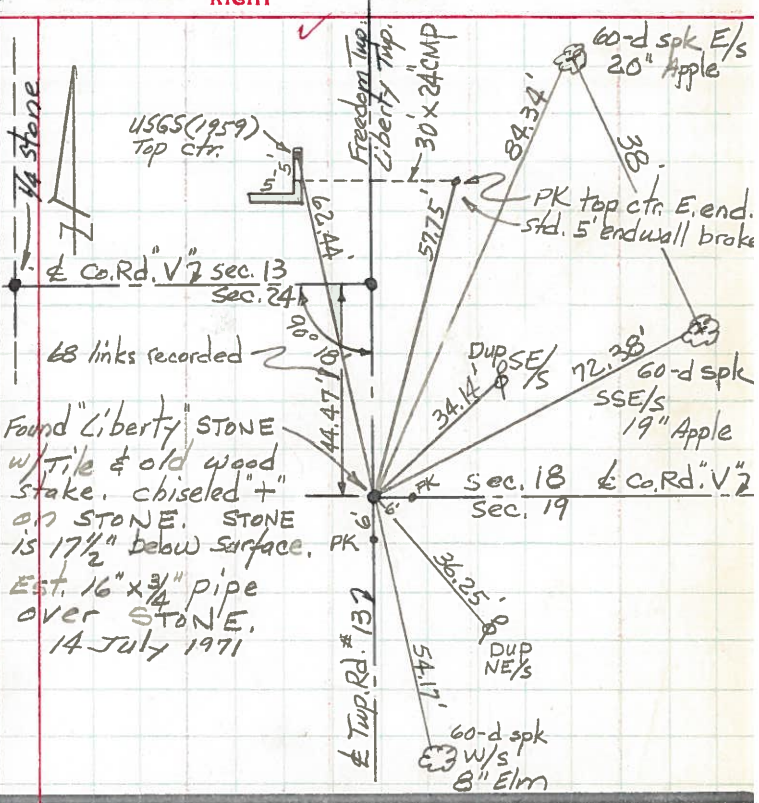 RIGHT
1/4 STONE
USGS (1959)
Top ctr.
5'
5'
62.44'
Freedom Twp.
Liberty Twp.
30' x 24" CMP
84.34'
60-d spk E/s
20" Apple
38'
PK top ctr. E. end.
std. 5' endwall broke
57.75'
℄ Co.Rd."V" sec. 13
Sec. 24
90°
68 links recorded
18'
44.47'
Dup SE/S
34.14'
72.38'
60-d spk
SSE/s
19" Apple
Found "Liberty" STONE
w/Tile & old wood
stake. chiseled "+"
on STONE. STONE
is 17½" below surface.
Est. 16" x ¾" pipe
over STONE.
14 July 1971
PK
6'
6'
PK
Sec. 18 ℄ Co.Rd."V"
Sec. 19
36.25'
DUP
NE/s
54.17'
℄ Twp. Rd. # 137
60-d spk
W/s
8" Elm